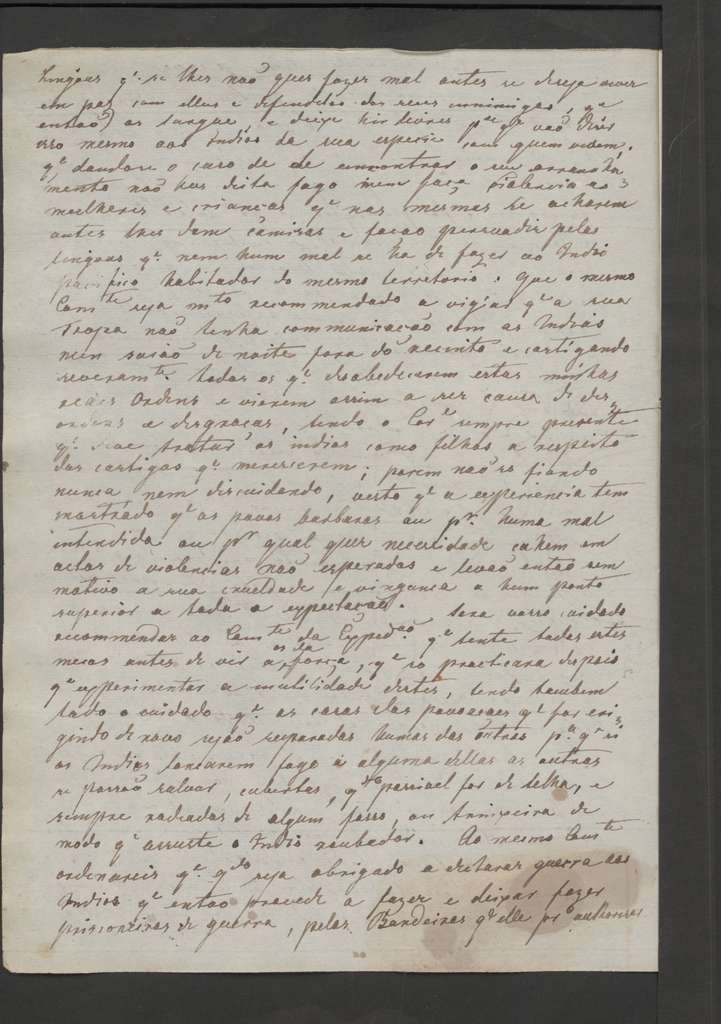 Lingoas q' se lhes não quer fazer mal antes se deseja viver
em paz com elles e defendelos dos seus inimigos, q'e
então os largue, e deixe hir livres p'a q'e vão dizer
isso mesmo aos Indios da sua especie com quem vivem,
q'e dandose o caso de se encontrar o seu arrancha
mento não lhes deita fogo nem faça violencia as
molheres e crianças q'e nas mesmas se acharem
antes lhes dem camizas e fação persuadir pelas
lingoas q'e nem hum mal se ha de fazer ao Indio
pacifico habitador do mesmo territorio. Que o mesmo
Com'te seja m'to recommendado a vigiar q'e a sua
Tropa não tenha communicação com as Indias
nem saião de noite fora do recinto e castigando
severam'te todos os q'e desobedecerem estas minhas
reaes ordens e vierem assim a ser causa de des=
ordens e desgraças, tendo o Cor'el sempre presente
q'e deve tratar os indios como filhos a respeito
dos castigos q'e merecerem; porem não se fiando
nunca nem discuidando, visto q'e a experiencia tem
mostrado q'e os povos barbaros ou p'r huma mal
intendida ou p'r qual quer necessidade cahem em
actos de violencias não esperadas e levão então sem
motivo a sua crueldade e vingança a hum ponto
superior a toda a expectação. Sera vosso cuidado
recommendar ao Com'te da Expped'ão q'e tente todos estes
meios antes de vir a os da força, q'e só practicara depois
q'e experimentar a inutilidade destes, tendo tambem
todo o cuidado q'e as casas das povoaçoes q'e for eri=
gindo de novo sejão separadas humas das outras p'a q'e se
os Indios lancarem fogo a alguma dellas as outras
se possão salvar, cubertas, q'to possivel for de telha, e
sempre rodeadas de algum fosso, ou trinxeira de
modo q'e assuste o Indio roubador. Ao mesmo Com'te
ordenareis q'e q'do seja obrigado a declarar guerra aos
Indios q'e então procede a fazer e deixar fazer
prisioneiros de guerra, pelas Bandeiras q'e elle pr'o authorisar